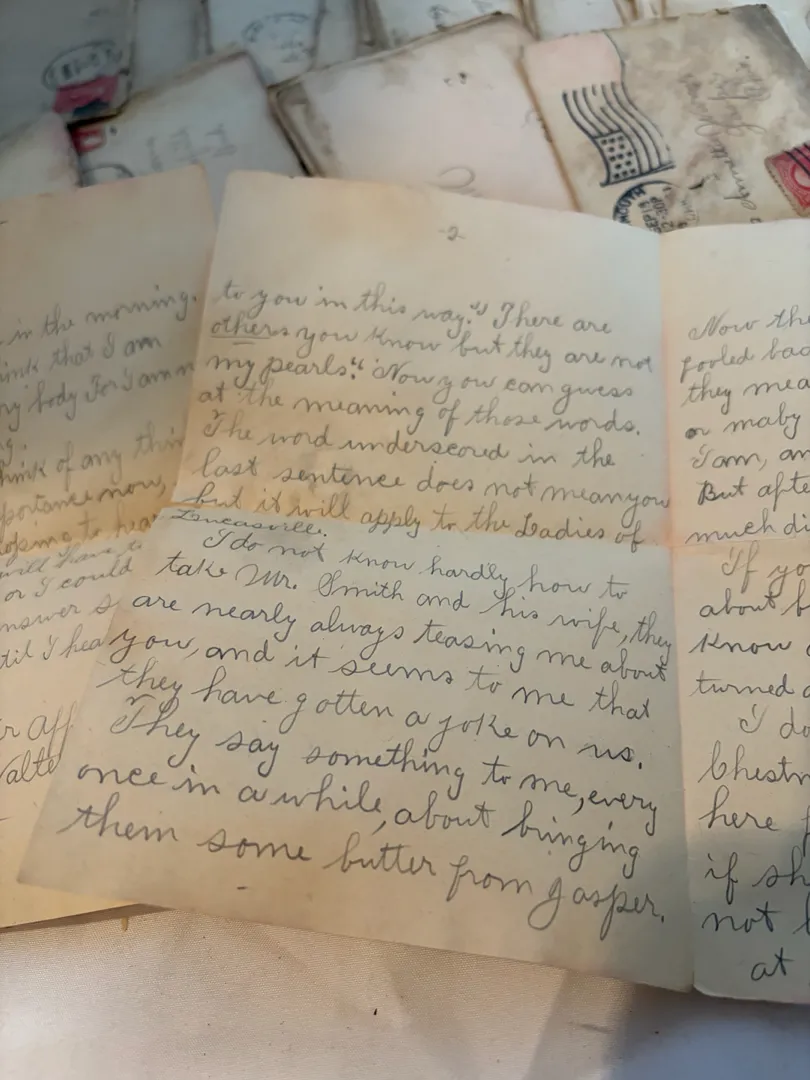 in the morning.
think that I am
my body For I am n
think of any thin
portance now,
oping to hea
will have to
or I could
answer s
til I hea
r aff
Walte
-2-
to you in this way." There are
others you know but they are not
my pearls." Now you can guess
at the meaning of those words.
The word underscored in the
last sentence does not mean you
but it will apply to the Ladies of
Lucasville.
I do not know hardly how to
take Mr. Smith and his wife, they
are nearly always teasing me about
you, and it seems to me that
they have gotten a joke on us.
They say something to me, every
once in a while, about bringing
them some butter from Jasper.
Now the
fooled bac
they mea
or maby
I am, an
But afte
much di
If yo
about b
know
turned a
I do
Chestn
here f
if sh
not b
at